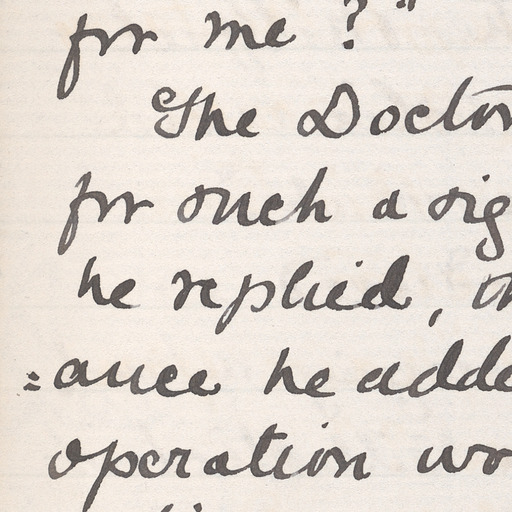 for me ?"
The Doctor
for such a sig
he replied,
=ance he adde
operation wo